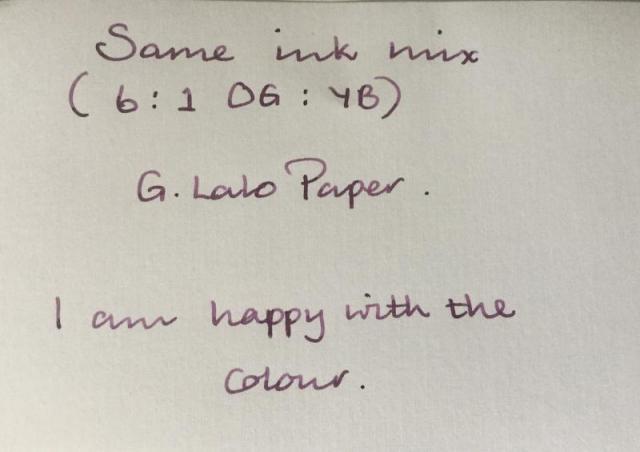 Same ink mix
( 6 : 1 OG : YB)
G. Lalo Paper .
I am happy with the
colour.